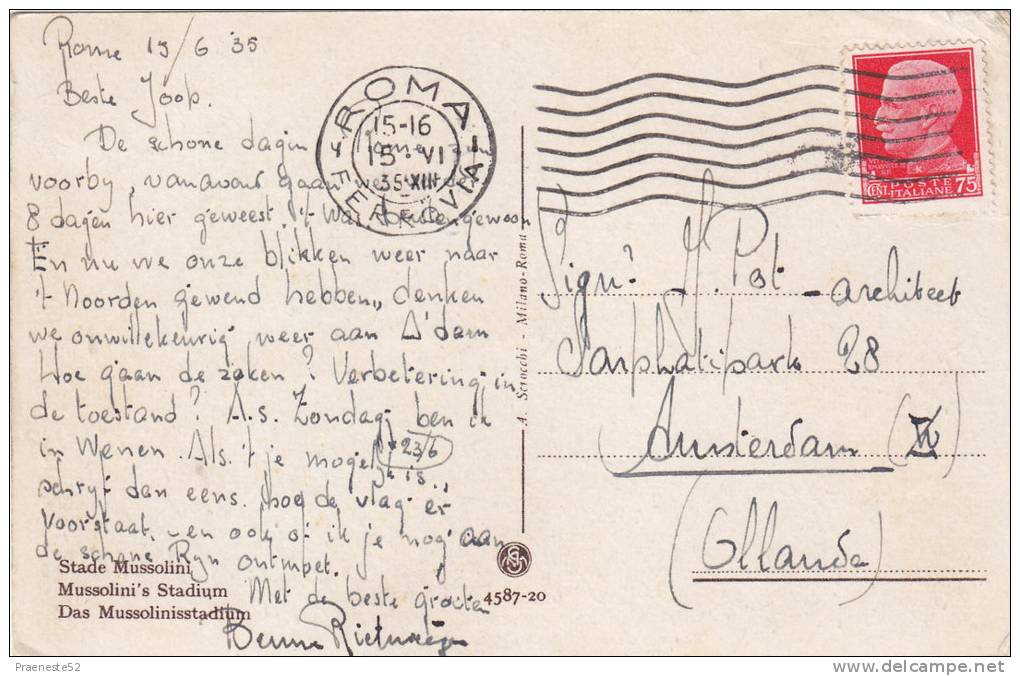 Rome 15/6 35
Beste Joop.
De schone dagen Rome zijn
voorby, vanavond gaan we
8 dagen hier geweest. 't Was buitengewoon
En nu we onze blikken weer naar
't Noorden gewend hebben, denken
we onwillekeurig weer aan A'dam
Hoe gaan de zaken? Verbetering in
de toestand? A.s. Zondag ben ik
in Wenen. Als 't je mogel. is
23/6
schryf dan eens hoe de vlag er
voorstaat, en ook of ik je nog aan
de schone Ryn ontmoet.
Met de beste groeten
Benno
Stade Mussolini
Mussolini's Stadium
Das Mussolinisstadium
4587-20
A. Scrocchi - Milano-Roma
ROMA
FERROVIA
15-16
15·VI
35·XIII
POSTE
ITALIANE
CENT. 75
Sign. J. Pot - architect
Sarphatipark 28
Amsterdam (Z)
(Ollanda)
Praeneste52
delcampe.net